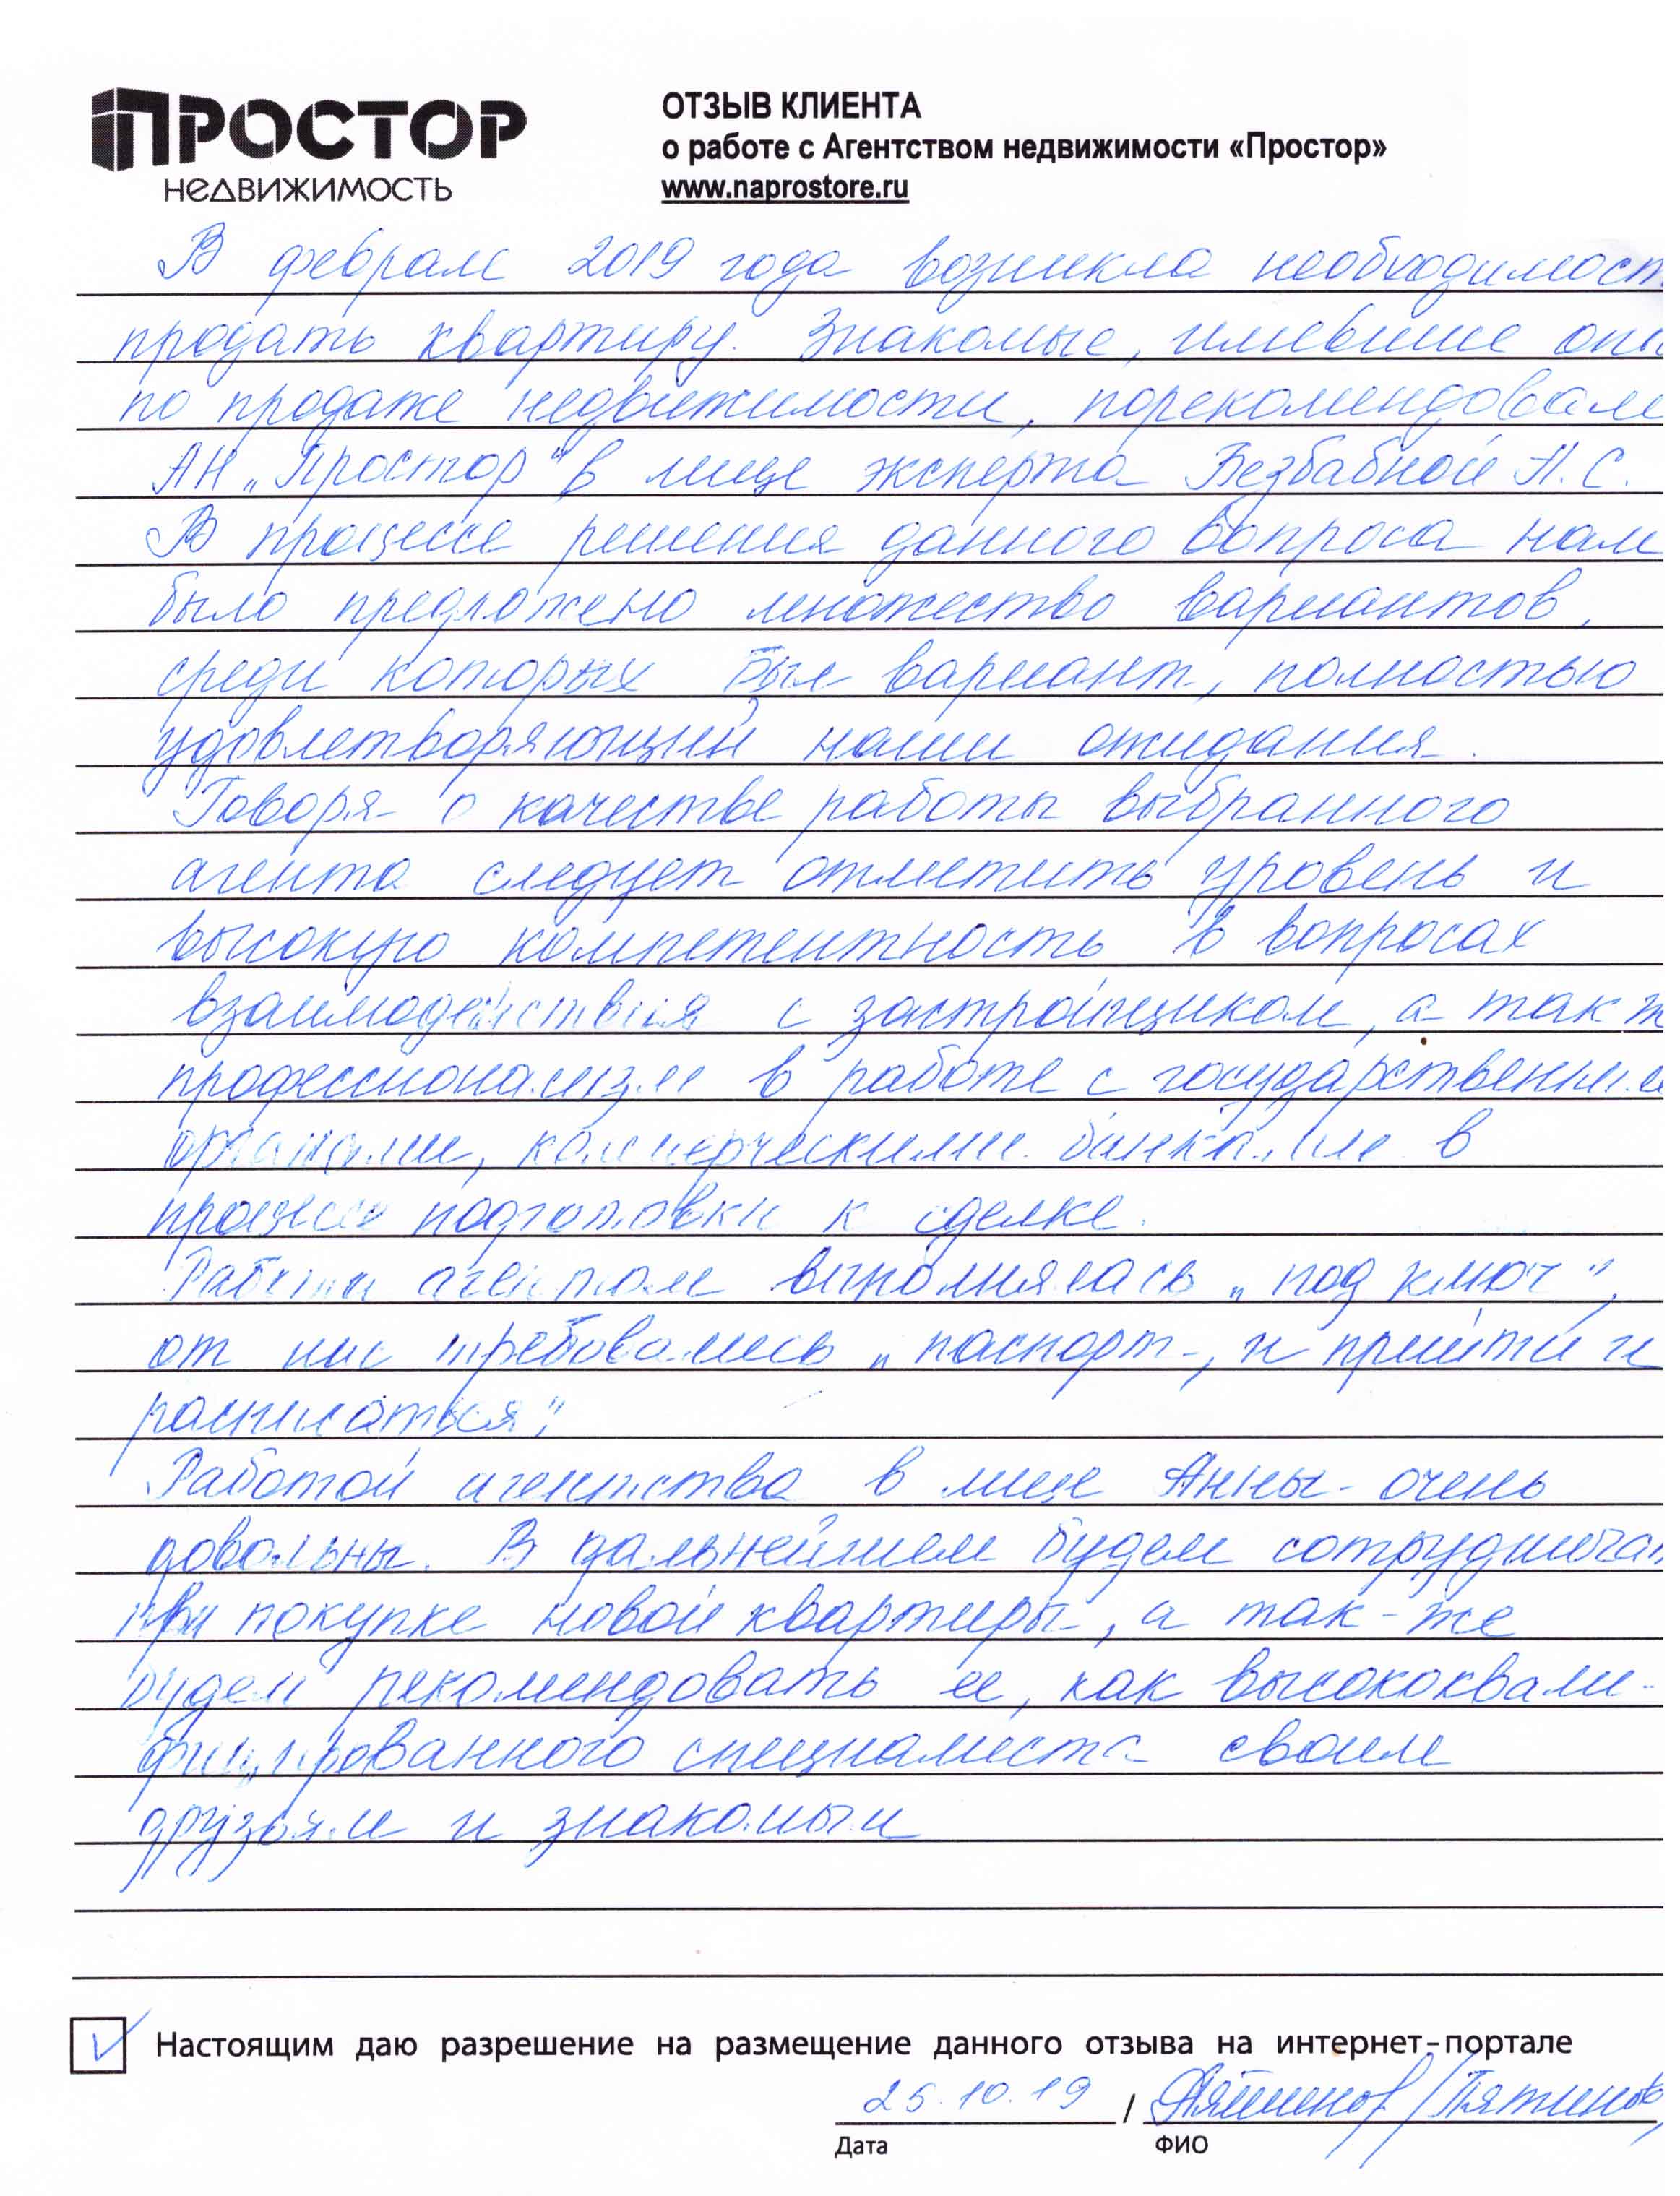 ПРОСТОР
НЕДВИЖИМОСТЬ
ОТЗЫВ КЛИЕНТА
о работе с Агентством недвижимости «Простор»
www.naprostore.ru
В феврале 2019 года возникла необходимост
продать квартиру. Знакомые, имевшие опы
по продаже недвижимости, порекомендовали
АН „Простор" в лице эксперта Безбабной А. С.
В процессе решения данного вопроса нам
было предложено множество вариантов,
среди которых был вариант, полностью
удовлетворяющий наши ожидания.
Говоря о качестве работы выбранного
агента следует отметить уровень и
высокую компетентность в вопросах
взаимодействия с застройщиком, а так ж
профессионализм в работе с государственны
органами, коммерческими банками в
процессе подготовки к сделке.
Работа агентом выполнялась „под ключ",
от нас требовались „паспорт, и прийти и
расписаться".
Работой агентства в лице Анны - очень
довольны. В дальнейшем будем сотруднича
при покупке новой квартиры, а так-же
будем рекомендовать ее, как высококвали-
фицированного специалиста своим
друзьям и знакомым
V Настоящим даю разрешение на размещение данного отзыва на интернет-портале
25.10.19 /
Дата ФИО